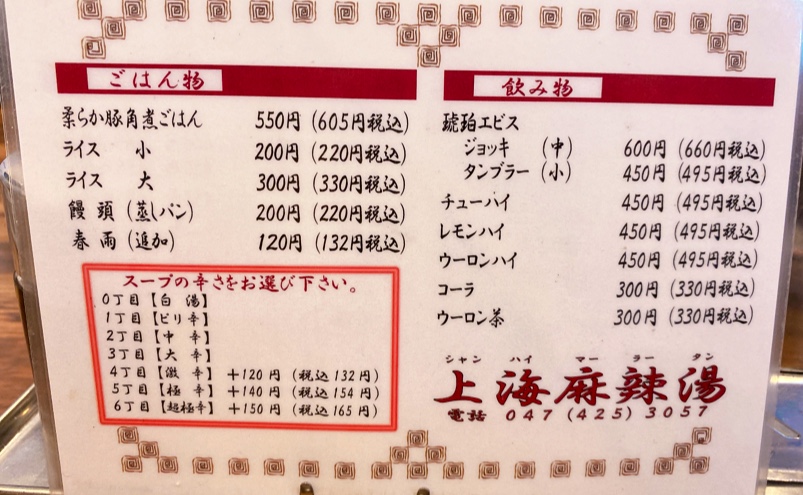 ごはん物
柔らか豚角煮ごはん 550円(605円税込)
ライス 小 200円(220円税込)
ライス 大 300円(330円税込)
饅頭(蒸しパン) 200円(220円税込)
春雨(追加) 120円(132円税込)
スープの辛さをお選び下さい。
0丁目【白 湯】
1丁目【ピリ辛】
2丁目【中 辛】
3丁目【大 辛】
4丁目【激 辛】 +120円(税込132円)
5丁目【極 辛】 +140円(税込154円)
6丁目【超極辛】 +150円(税込165円)
飲み物
琥珀エビス
ジョッキ (中) 600円(660円税込)
タンブラー(小) 450円(495円税込)
チューハイ 450円(495円税込)
レモンハイ 450円(495円税込)
ウーロンハイ 450円(495円税込)
コーラ 300円(330円税込)
ウーロン茶 300円(330円税込)
シャン ハイ マー ラー タン
上海麻辣湯
電話 047(425)3057